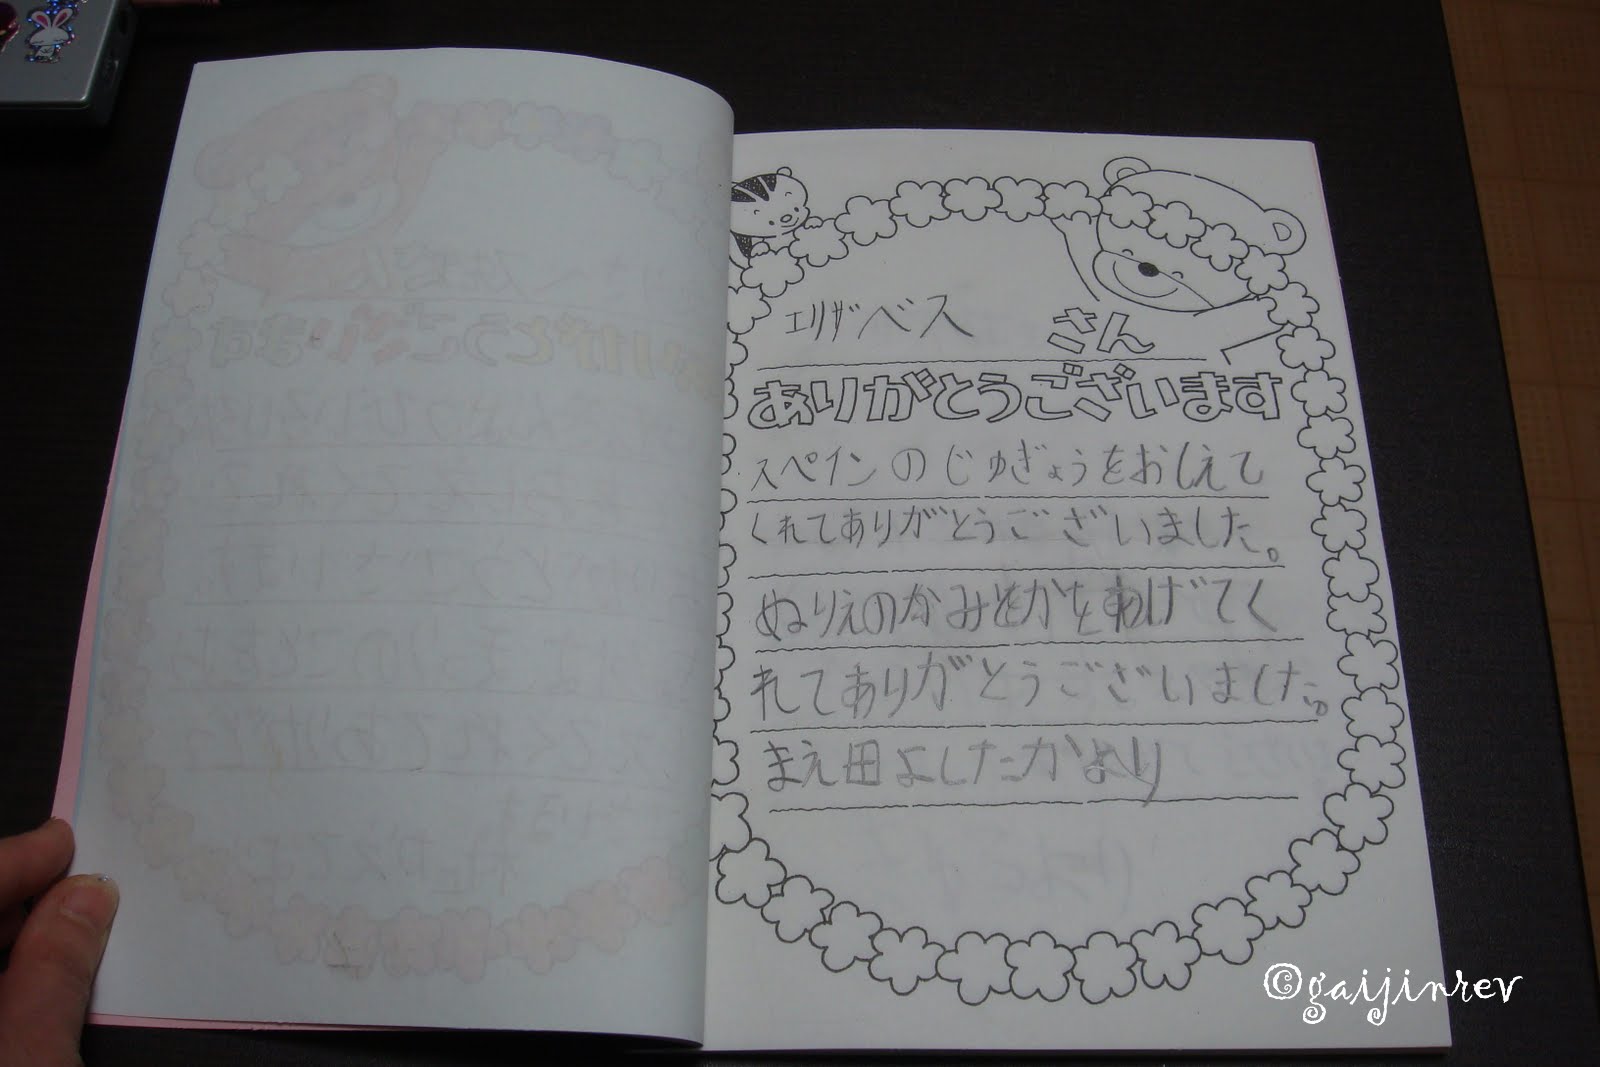 エリザベス さん
ありがとうございます
スペインのじゅぎょうをおしえて
くれてありがとうございました。
ぬりえのかみとかをあげてく
れてありがとうございました。
まえ田よしたかより
©gaijinrev